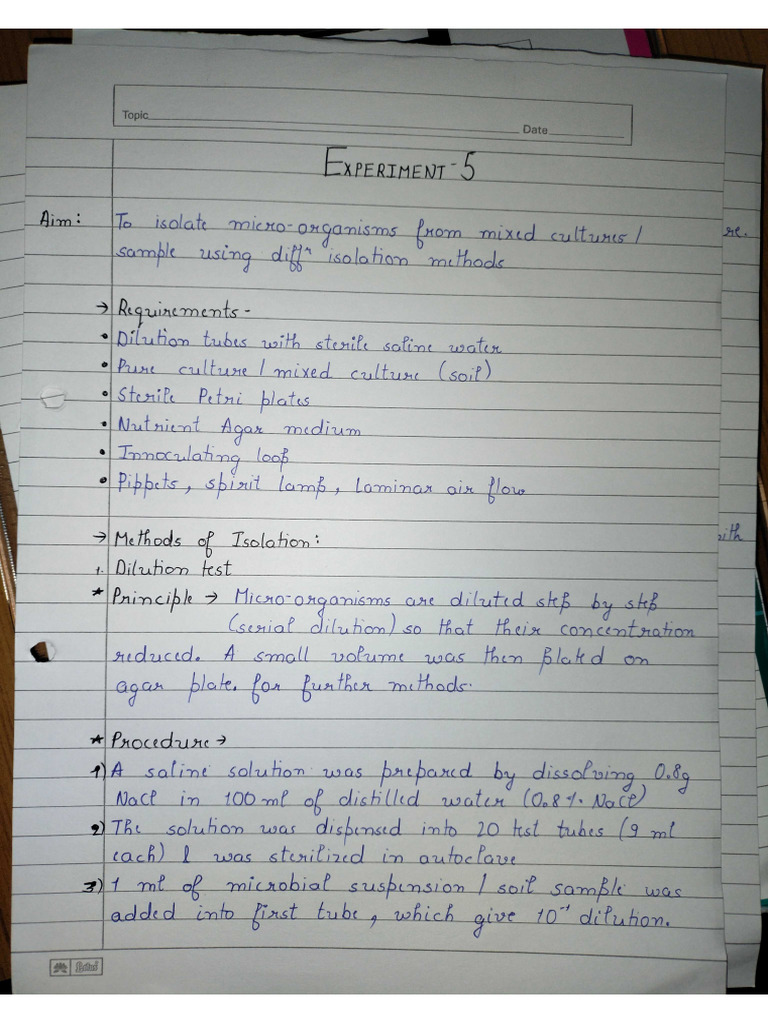 Topic
Date
EXPERIMENT-5
Aim: To isolate micro-organisms from mixed cultures/
sample using diffⁿ isolation methods
re.
→ Requirements-
• Dilution tubes with sterile saline water
• Pure culture/mixed culture (soil)
• Sterile Petri plates
• Nutrient Agar medium
• Innoculating loop
• Pippets, spirit lamp, Laminar air flow
→ Methods of Isolation:
1. Dilution test
* Principle → Micro-organisms are diluted step by step
(serial dilution) so that their concentration
reduced. A small volume was then plated on
agar plate. for further methods.
* Procedure →
1) A saline solution was prepared by dissolving 0.8g
NaCl in 100 ml of distilled water (0.8% NaCl)
2) The solution was dispensed into 20 test tubes (9 ml
each) & was sterilized in autoclave
3) 1 ml of microbial suspension / soil sample was
added into first tube, which give 10⁻¹ dilution.